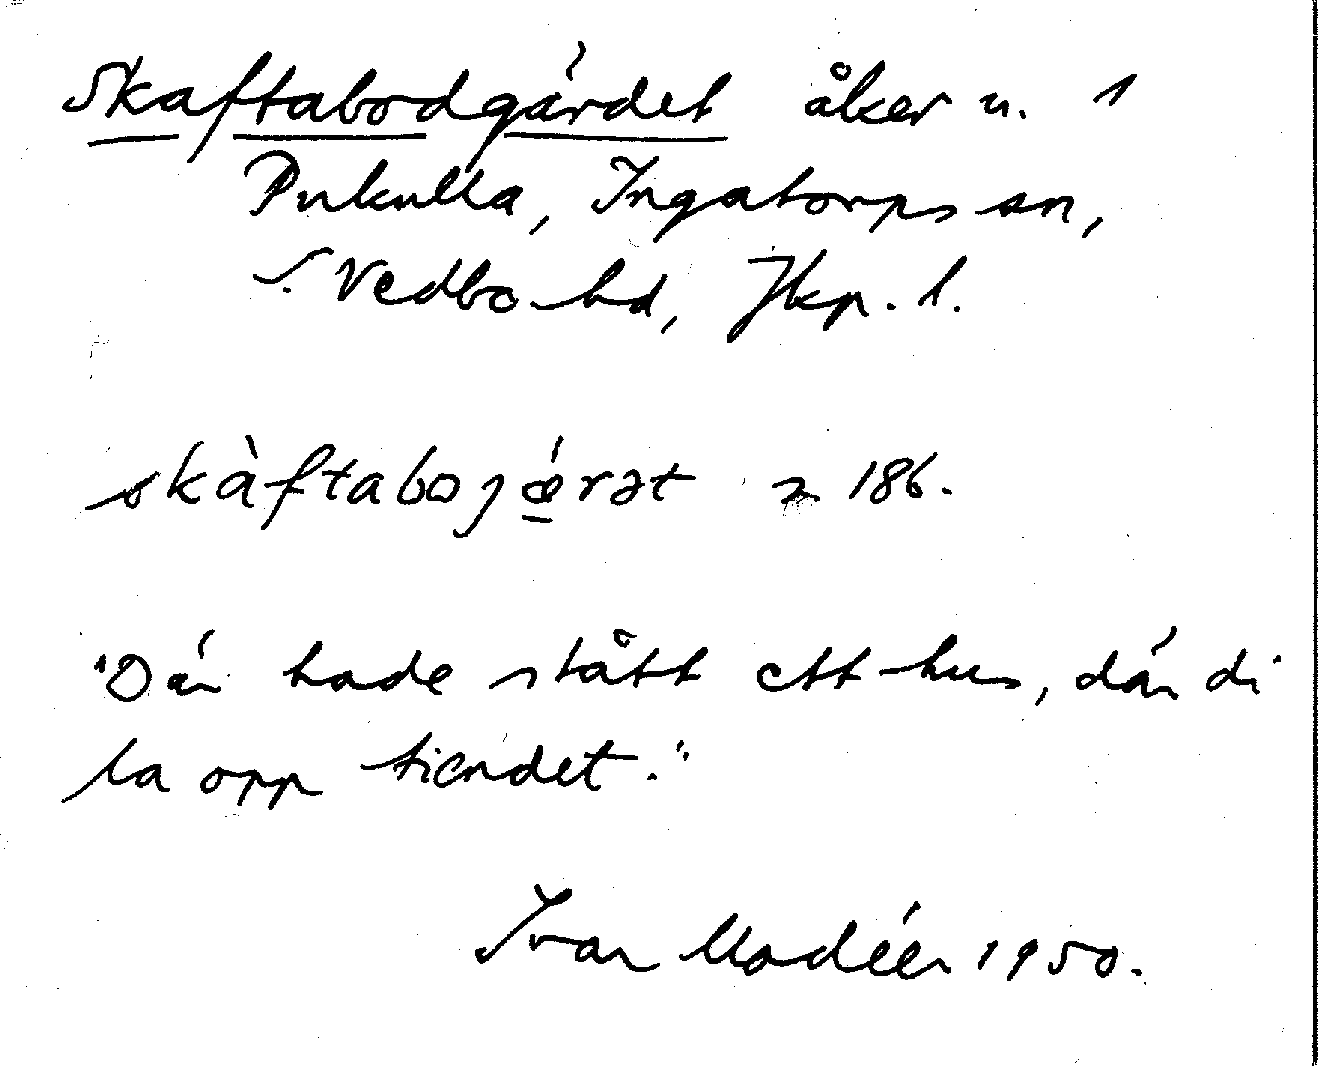 Skaftabodgärdet åker u. 1
Pukulla, Ingatorps sn,
S. Vedbo hd, Jkp. l.
skàftabojǽrət 186.
"Där hade stått ett hus, där di
la opp tiendet."
Ivar Modéer 1950.